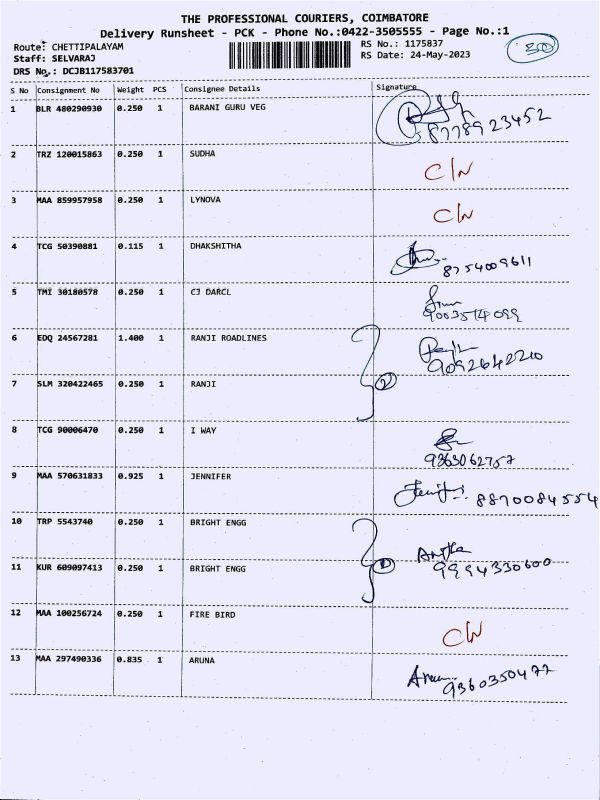 THE PROFESSIONAL COURIERS, COIMBATORE
Delivery Runsheet - PCK - Phone No.:0422-3505555 - Page No.:1
Route: CHETTIPALAYAM RS No.: 1175837
Staff: SELVARAJ RS Date: 24-May-2023
DRS No.: DCJB117583701
30
S No Consignment No Weight PCS Consignee Details Signature
1 BLR 480290930 0.250 1 BARANI GURU VEG
8778923452
2 TRZ 120015863 0.250 1 SUDHA
C/N
3 MAA 859957958 0.250 1 LYNOVA
C/N
4 TCG 50390881 0.115 1 DHAKSHITHA
8754009611
5 TMI 30180578 0.250 1 CJ DARCL
9003574099
6 EDQ 24567281 1.400 1 RANJI ROADLINES
9092642210
7 SLM 320422465 0.250 1 RANJI
2
8 TCG 90006470 0.250 1 I WAY
9363062757
9 MAA 570631833 0.925 1 JENNIFER
Jennifer 8870084554
10 TRP 5543740 0.250 1 BRIGHT ENGG
11 KUR 609097413 0.250 1 BRIGHT ENGG
9994330600
12 MAA 100256724 0.250 1 FIRE BIRD
C/N
13 MAA 297490336 0.835 1 ARUNA
9360350477